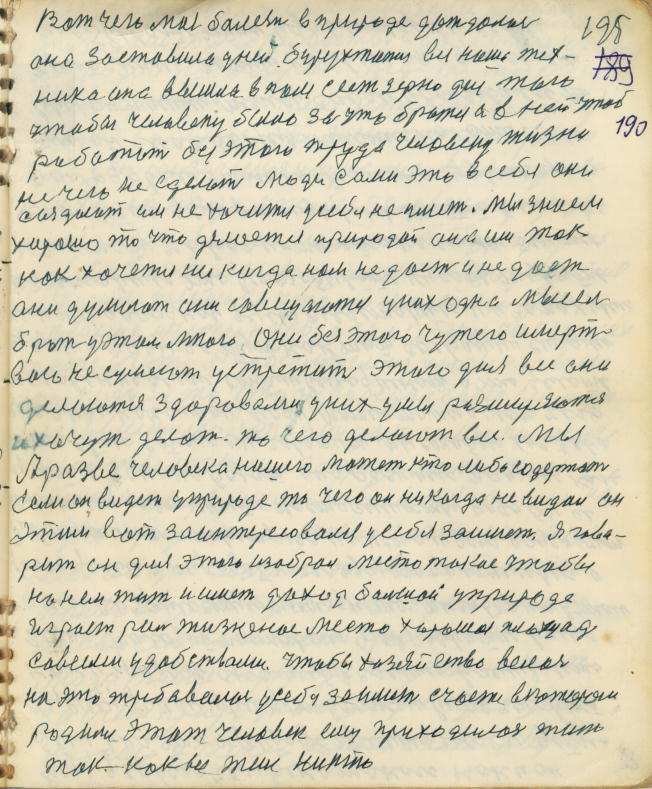 Вот чего мы болеем в природе дождалися
198
она заставила дней. бурухтатя вся наша тех-
189
ника она вышла в поле сеет зерно для того
чтобы человеку было за что братся а в ней чтоб
190
работат без этого труда человеку жизни
не чего не сделат люди сами это в себя они
создают им не хочится усебя неимет. Мы знаем
хорошо то что делоется природой она им так
как хочется ни когда нам не даст и не дает
они думают они совещаются у них одна мысел
брат у этом много. Они без этого чужего и мерт-
вого не сумеют устретит этого дня все они
делоются здоровами у них умы разширяются
и хочут делат. то чего делают все. Мы
А разве человека нашего может кто либо содержат
Если он видет у природе то чего он ни когда не видал он
этим вот заинтересовался усебя займет. Я гова-
рит он для этого избрал место такое чтобы
на нем жит и имет доход большой у природе
играет рол жизненое место хорошая площад
совсеми удобствами. чтобы хозяйство велося
на это требавалос усебя займет счасте в котором
родили Этот человек ему приходилося жить
так как все жили никто